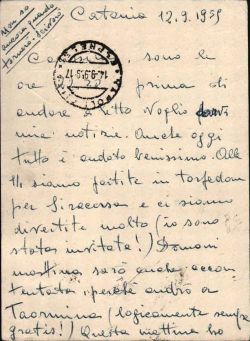 Non so
ancora quando
tornerò. Scrivirò
Catania 12.9.1959
sono le
ore di prima di
andare a letto voglio darvi
mie notizie. Anche oggi
tutto è andato benissimo. Alle
11 siamo partite in torpedone
per Siracusa e ci siamo
divertite molto (io sono
stata invitata!) Domani
mattina sarò anche accon
tentata, perché andrò a
Taormina (logicamente sempre
gratis!) Questa mattina ho